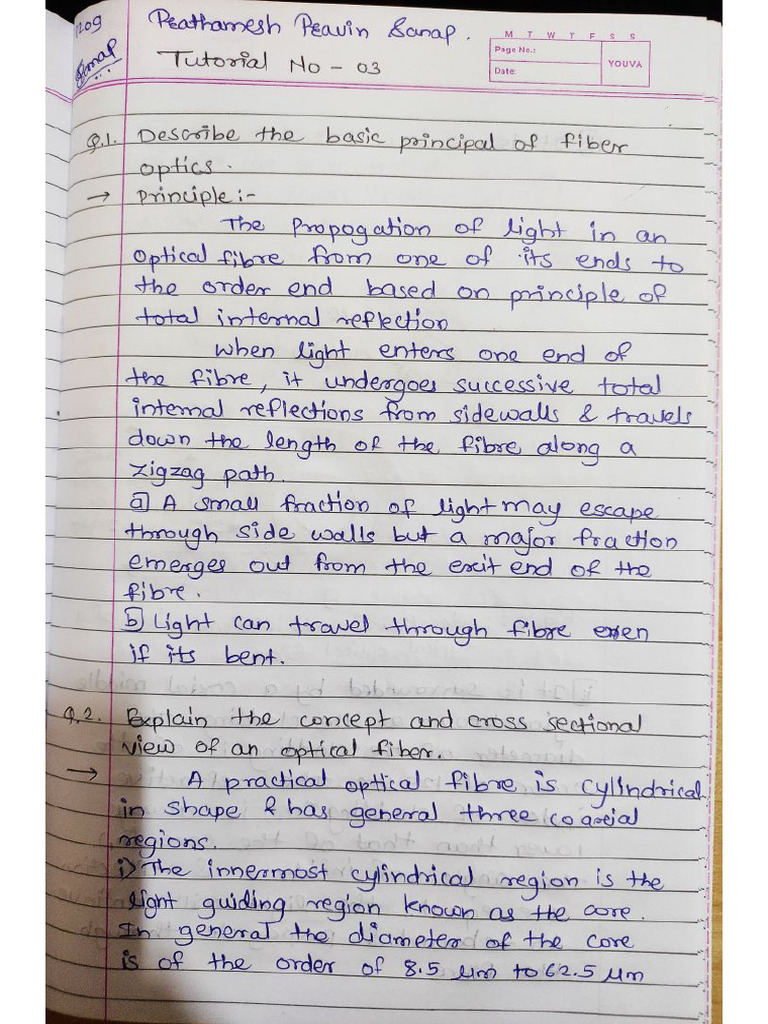 1209
Prathamesh Pravin Sanap.
M T W T F S S
Page No.:
Date:
YOUVA
Tutorial No - 03
Q.1. Describe the basic principal of fiber
optics.
→ Principle :-
The Propogation of light in an
optical fibre from one of its ends to
the order end based on principle of
total internal reflection
When light enters one end of
the fibre, it undergoes successive total
internal reflections from sidewalls & travels
down the length of the fibre along a
zigzag path.
a) A small fraction of light may escape
through side walls but a major fraction
emerges out from the exit end of the
fibre.
b) Light can travel through fibre even
if its bent.
Q.2. Explain the concept and cross sectional
view of an optical fiber.
→ A practical optical fibre is cylindrical
in shape & has general three coaxial
regions.
i) The innermost cylindrical region is the
light guiding region known as the core.
In general the diameter of the core
is of the order of 8.5 μm to 62.5 μm